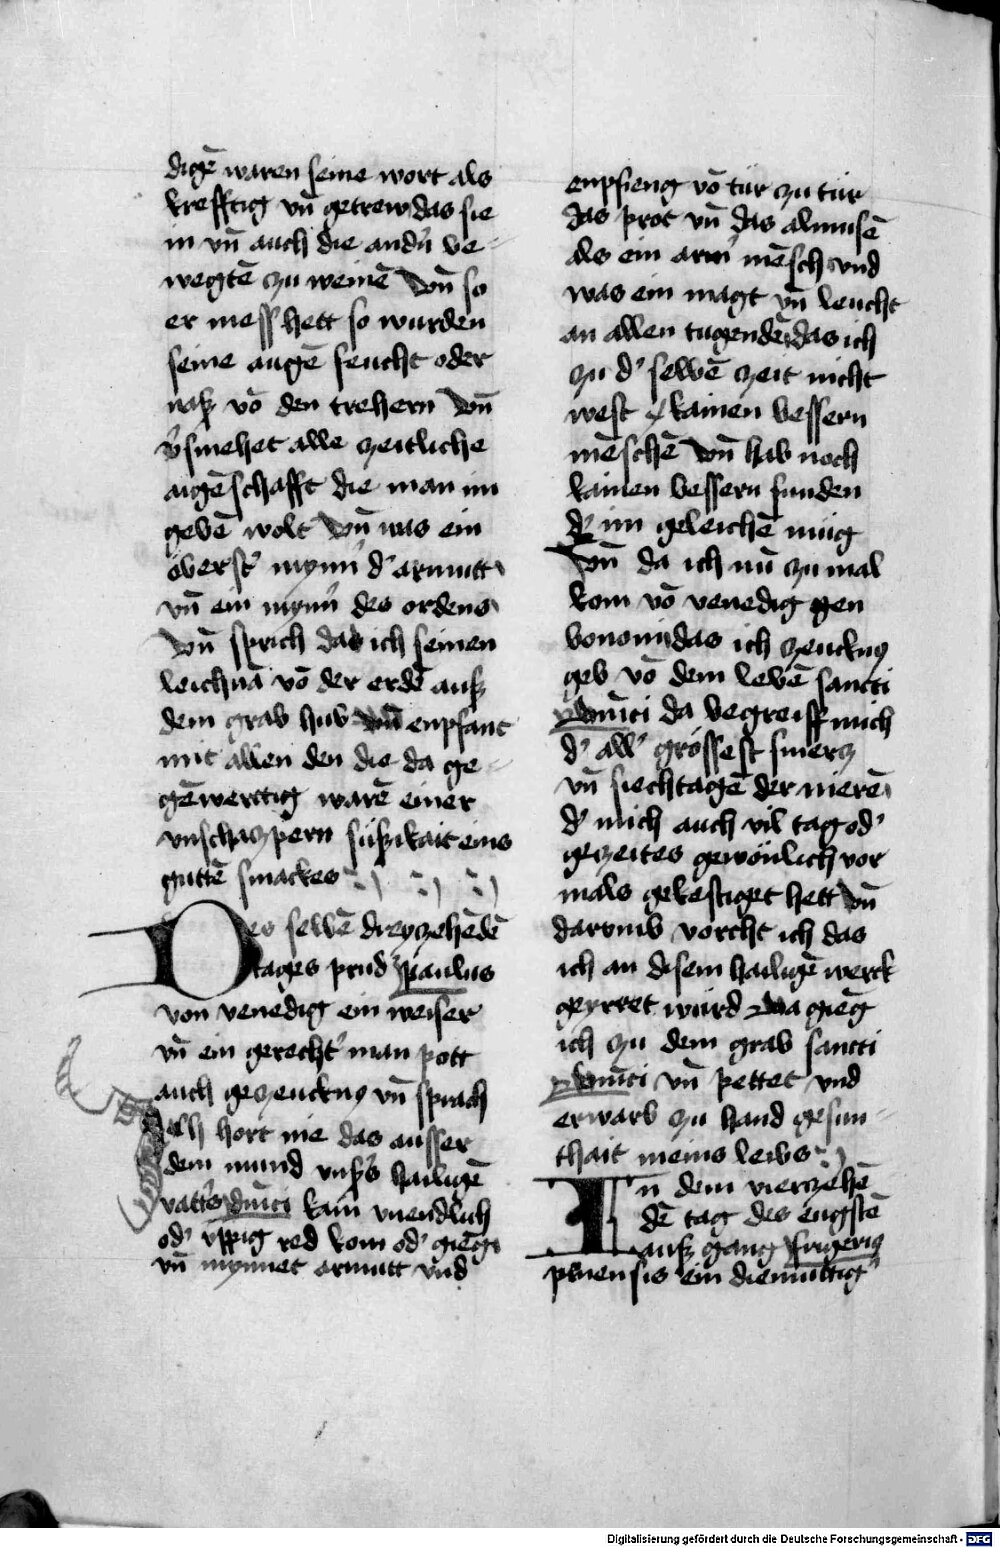 digē waren seine wort als
krefftig vn̄ getrew das sie
in vn̄ auch die andn̄ be-
wegtē zu weinē Vn̄ so
er mess hett so wurden
seine augē feucht oder
naß vō den trehern Vn̄
v̓smehet alle zeitliche
aigēschafft die man im
gebē wolt Vn̄ was ein
öberst̓ mynn̓ d̓ armutt
vn̄ ein mynn̓ des ordens
Vn̄ sprich das ich seinen
leichnā vō der erdē auß
dem grab hub vn̄ enpfant
mit allen den die da ge-
gēwerttig warē einer
vnschatzpern süßikait eins
guttē smackes
Des selbē dreyzehēdē
tages prud̓ paulus
von venedig ein weiser
vn̄ ein gerecht̓ man pott
auch gezeucknu͂s vn̄ sprach
Ich hort nie das ausser
dem mund vnß̓s hailigē
vatt̓s dn̄ici kain vnendlich
od̓ vppig red kom od̓ giēg
vn̄ mynnet armutt vnd
enpfieng vō tür zu tür
das prot vn̄ das almusē
als ein arm̓ mēsch vnd
was ein magt vn̄ leucht
an allen tugendē das ich
zu d̓ selbē zeit nicht
west kainen bessern
mēschē Vn̄ hab noch
kainen bessern funden
d̓ im geleichē müg
Vn̄ da ich nū zu mal
kom vō venedig gen
bononi das ich zeucknu͂s
geb vō dem lebē sancti
dn̄ici da begreiff mich
d̓ all̓ grössest smercz
vn̄ siechtagē der nierē
d̓ mich auch vil tag od̓
gezeites gewönlich vor
mals gekestiget hett Vn̄
darvmb vorcht ich das
ich an disem hailigē werck
geyrret würd Da giēg
ich zu dem grab sancti
dn̄ici vn̄ pettet vnd
erwarb zu hand gesun-
thait meins leibs
In dem vierzehē
dē tag des eugstē
auß gang frugerius
penensis ein diemüttig̓